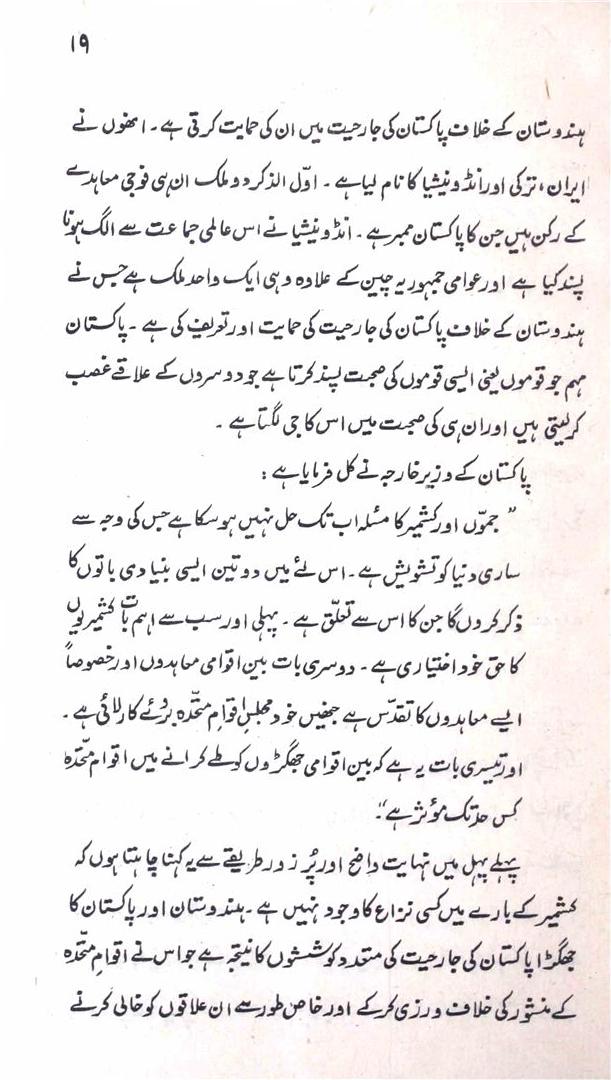 ۱۹
ہندوستان کے خلاف پاکستان کی جارحیت میں ان کی حمایت کرتی ہے۔ انھوں نے
ایران، ترکی اور انڈونیشیا کا نام لیا ہے۔ اوّل الذکر دو ملک ان ہی فوجی معاہدے
کے رکن ہیں جن کا پاکستان ممبر ہے۔ انڈونیشیا نے اس عالمی جماعت سے الگ ہونا
پسند کیا ہے اور عوامی جمہوریہ چین کے علاوہ وہی ایک واحد ملک ہے جس نے
ہندوستان کے خلاف پاکستان کی جارحیت کی حمایت اور تعریف کی ہے۔ پاکستان
مہم جو قوموں یعنی ایسی قوموں کی صحبت پسند کرتا ہے جو دوسروں کے علاقے غصب
کر لیتی ہیں اور ان ہی کی صحبت میں اس کا جی لگتا ہے۔
پاکستان کے وزیر خارجہ نے کل فرمایا ہے:
”جمّوں اور کشمیر کا مسئلہ اب تک حل نہیں ہو سکا ہے جس کی وجہ سے
ساری دنیا کو تشویش ہے۔ اس لئے میں دو تین ایسی بنیادی باتوں کا
ذکر کروں گا جن کا اس سے تعلّق ہے۔ پہلی اور سب سے اہم بات کشمیریوں
کا حق خود اختیاری ہے۔ دوسری بات بین اقوامی معاہدوں اور خصوصاً
ایسے معاہدوں کا تقدّس ہے جنھیں خود مجلسِ اقوامِ متّحدہ بروئے کار لائی ہے۔
اور تیسری بات یہ ہے کہ بین اقوامی جھگڑوں کو طے کرانے میں اقوام متّحدہ
کس حد تک مؤثر ہے“۔
پہلے پہل میں نہایت واضح اور پُر زور طریقے سے یہ کہنا چاہتا ہوں کہ
کشمیر کے بارے میں کسی نزاع کا وجود نہیں ہے۔ ہندوستان اور پاکستان کا
جھگڑا پاکستان کی جارحیت کی متعدد کوششوں کا نتیجہ ہے جو اس نے اقوامِ متّحدہ
کے منشور کی خلاف ورزی کر کے اور خاص طور سے ان علاقوں کو خالی کرنے